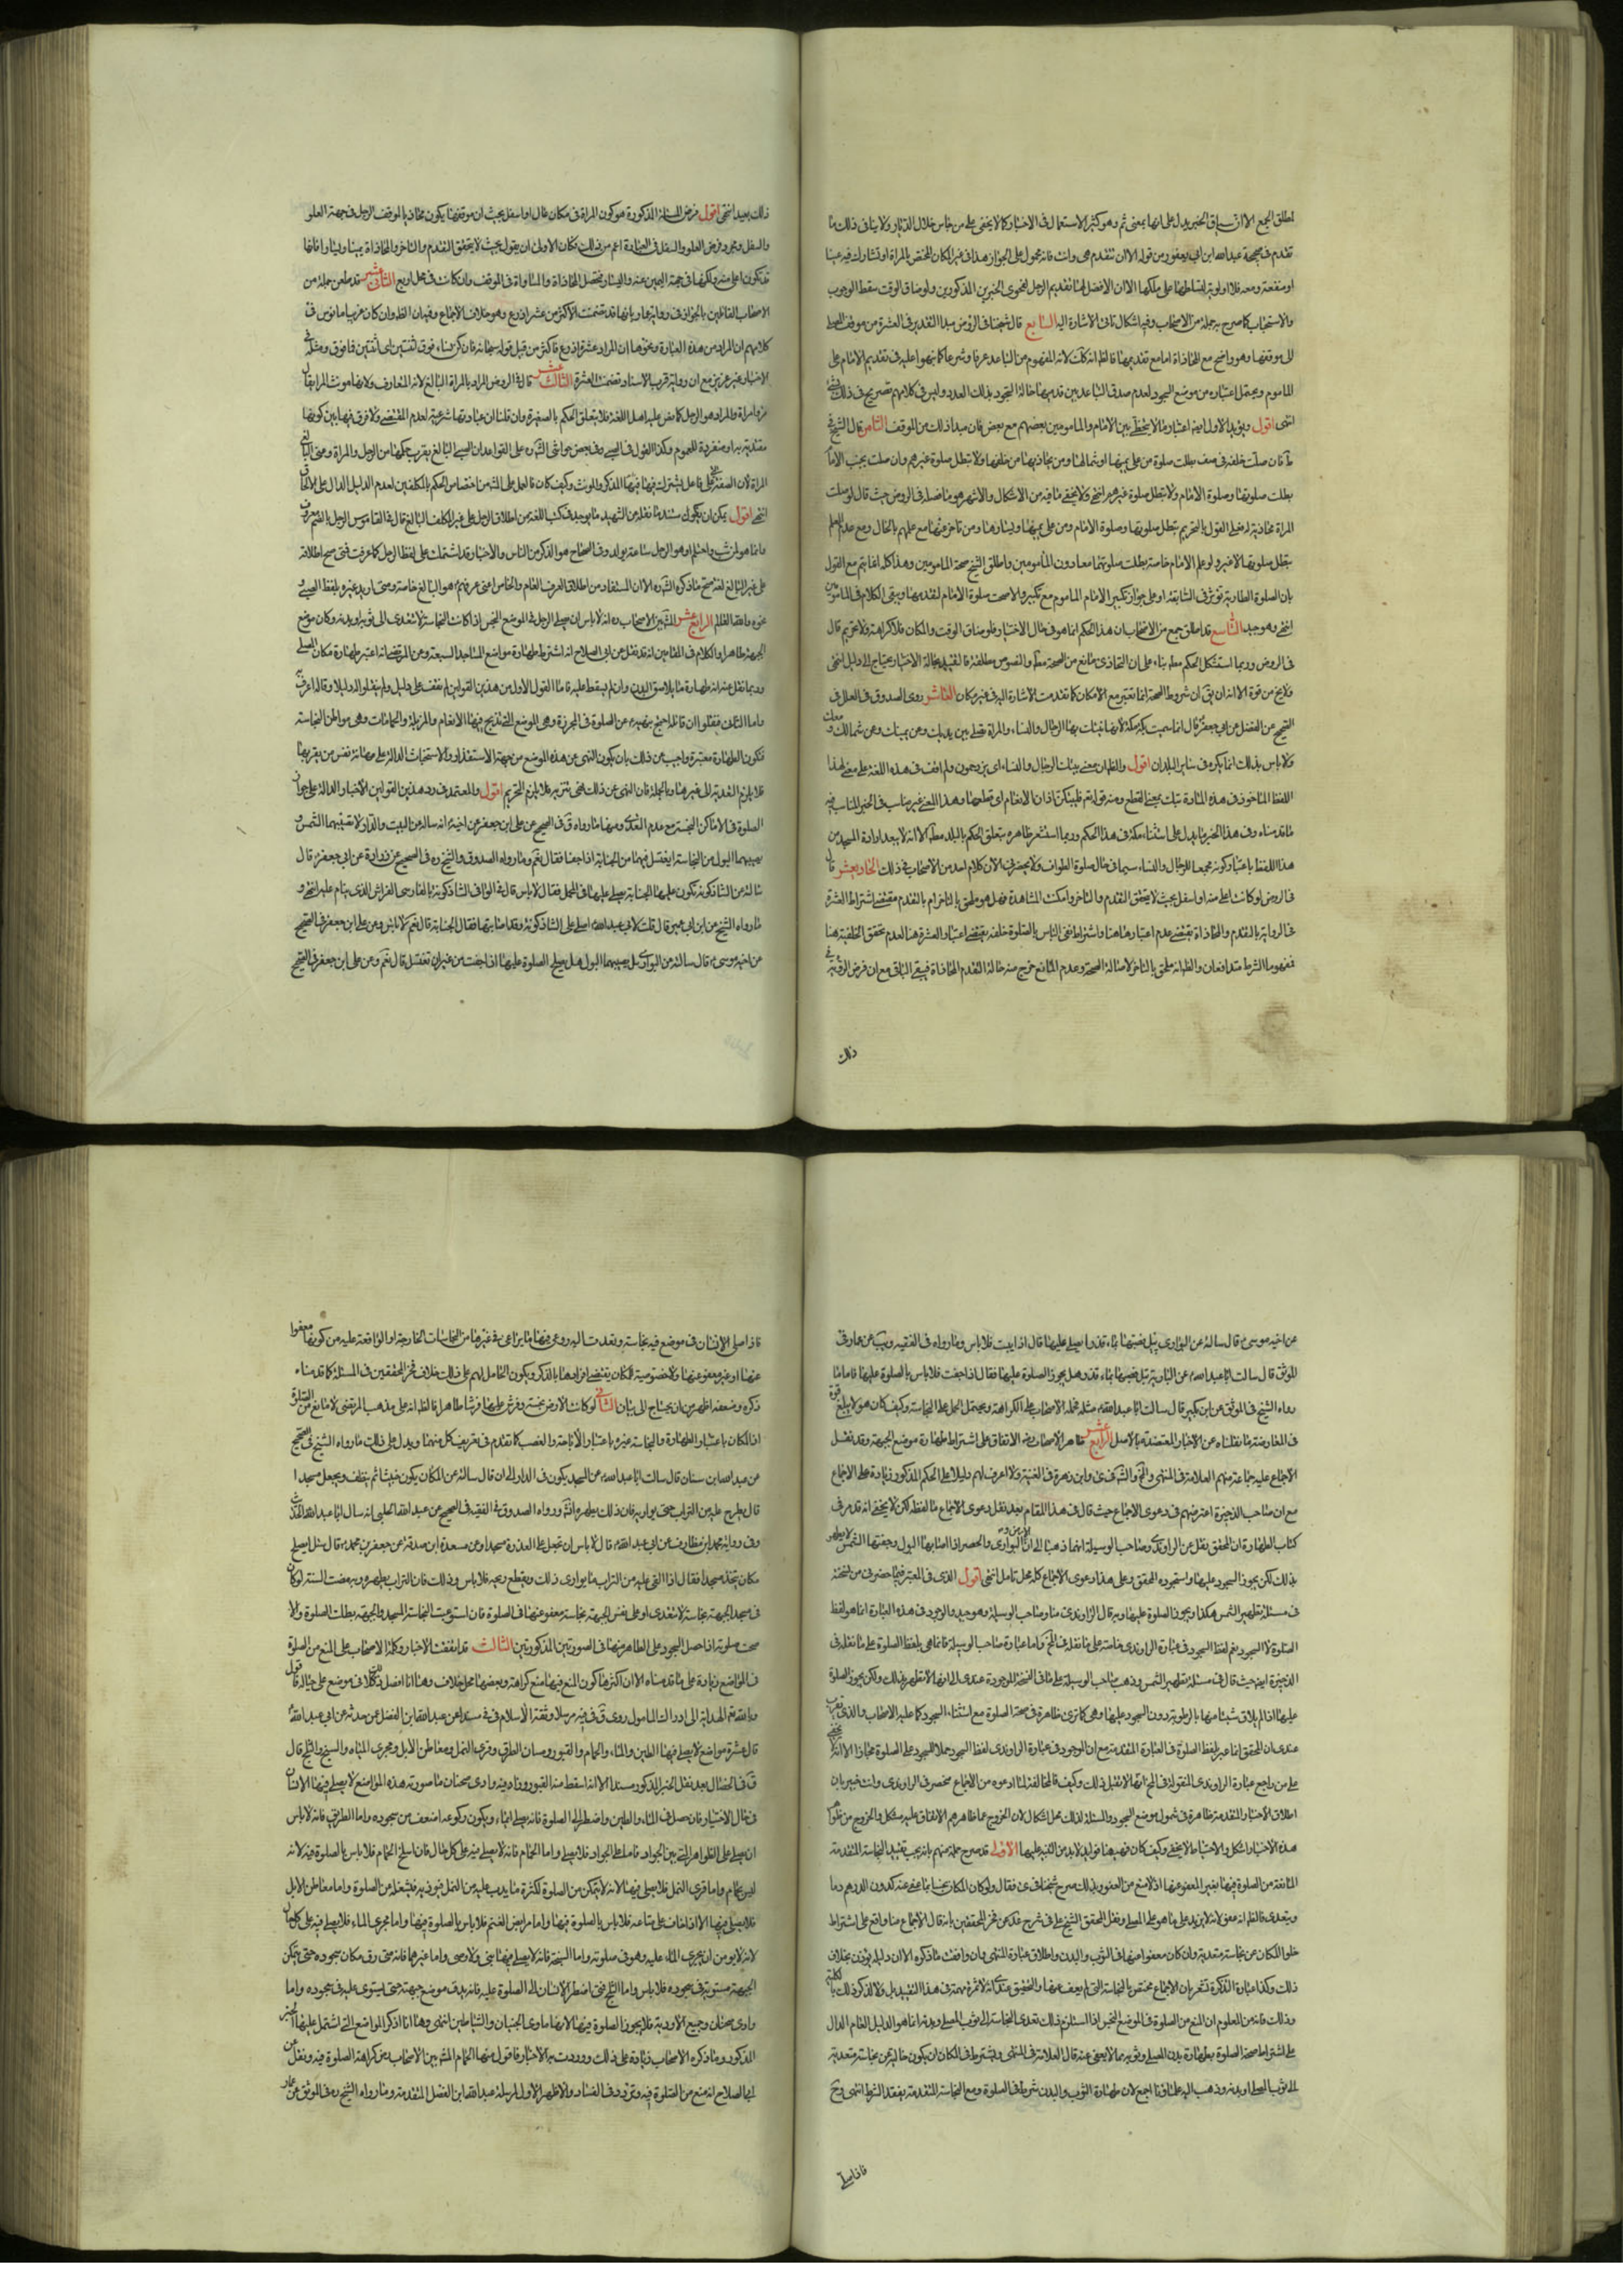 اطلق الجمع الا ان سياق الخبر يدل على انها بمعنى ثم وهو كثير الاستعمال في الاخبار كما لا يخفى على من جاس خلال الديار ولا ينافي ذلك ما
تقدم في صحيحة عبدالله ابن ابي يعفور من قوله الا ان تتقدم هي وانت فانه محمول على الجواز هذا في غير المكان المختص بالمراة او تشاركه فيه عينا
او منفعة ومعه فلا اولوية لتسلطها على ملكها الا ان الافضل لها تقديم الرجل لفحوى الخبرين المذكورين ولو ضاق الوقت سقط الوجوب
والاستحباب كما صرح به جملة من الاصحاب وفيه اشكال تاتي الاشارة اليه السابع قال شيخنا في الروض مبدا التقدير في العشرة من موقف المصلي
الى موقفها وهو واضح مع المحاذاة اما مع تقدمها فالظ انه كك لانه المفهوم من التباعد عرفا وشرعا كما نبهوا عليه في تقديم الامام على
الماموم ويحتمل اعتباره من موضع السجود لعدم صدق التباعد بين قدميها حالة السجود بذلك العدد وليس في كلامهم تصريح في ذلك بشئ
انتهى اقول ويؤيد الاول ايضا اعتبار ما لا يتخطى بين الامام والمامومين بعضهم مع بعض فان مبدا ذلك من الموقف الثامن قال الشيخ في
ط فان صلت خلفه في صف بطلت صلوة من على يمينها وشمالها ومن يحاذيها من خلفها ولا تبطل صلوة غيرهم وان صلت بجنب الامام
بطلت صلوتها وصلوة الامام ولا تبطل صلوة غيرهم انتهى ولا يخفى ما فيه من الاشكال والاشهر هو ما فصله في الروض حيث قال لو صلت
المراة محاذية لامام فعلى القول بالتحريم تبطل صلوتها وصلوة الامام ومن على يمينها ويسارها ومن تاخر عنها مع علمهم بالحال ومع عدم العلم
تبطل صلوتها لا غير ولو علم الامام خاصة بطلت صلوتهما معا دون المامومين واطلق الشيخ صحة المامومين وهذا كله انما يتم مع القول
بان الصلوة الطارية تؤثر في السابقة او على جواز تكبير الامام الماموم مع تكبيره والا صحت صلوة الامام لتقدمها ويبقى الكلام في المامومين
انتهى وهو جيد التاسع قد اطلق جمع من الاصحاب بان هذا الحكم انما هو في حال الاختيار فلو ضاق الوقت والمكان فلا كراهة ولا تحريم قال
في الروض وربما استشكل الحكم معلل بناء على ان التحاذي مانع من الصحة مطلقا والنصوص مطلقة فالتقييد بحالة الاختيار يحتاج الى دليل انتهى
ولا يخ من قوة الا انه ان بقي ان شروط الصحة انما تعتبر مع الامكان كما تقدمت الاشارة اليه في غير مكان العاشر روى الصدوق في العلل في
الصحيح عن الفضيل عن ابي جعفر قال انما سميت بكة بكة لانها تبتك بها الرجال والنساء والمراة تصلي بين يديك وعن يمينك وعن شمالك ومعك
ولا باس بذلك انما يكره في ساير البلدان اقول والظ ان معنى يبتك الرجال والنساء اي يزدحمون ولم اقف في هذه اللغة على معنى لهذا
اللفظ الماخوذ في هذه المادة تبتك بمعنى القطع ومنه قوله تعالى فليبتكن اذان الانعام اي قطعها وهذا المعنى غير مناسب في الخبر المناسب فيه
ما قدمناه وفي هذا الخبر ما يدل على استثناء مكة في هذا الحكم وربما استشعر ظاهره تعلق الحكم بالبلد مطلقا الا انه لا يبعد ارادة المسجد من
هذا اللفظ باعتبار كونه مجمعا للرجال والنساء سيما في حال صلوة الطواف ولا يحضرني الان كلام احد من الاصحاب في ذلك الحادي عشر قال
في الروض لو كانت اعلى منه او اسفل بحيث لا يتحقق التقدم والتاخر وامكنت المشاهدة فهل هو ملحق بالتاخر ام بالتقدم مقتضى اشتراط العشرة
في الرواية بالتقدم والمحاذاة يقتضي عدم اعتبارها هنا واشتراط نفي الباس بالصلوة خلفه يقتضي اعتبار العشرة هنا لعدم تحقق الخلفية هنا
فمفهوما الشرط متدافعان والظ انه ملحق بالتاخر لاصالة الصحة وعدم المانع خرج منه حالة التقدم المحاذاة فيبقى الباقي مع ان فرض الرواية في
ذلك
ذلك بعيد انتهى اقول فرض المسئلة المذكورة هو كون المراة في مكان عال او اسفل بحيث ان موقفها يكون محاذيا لموقف الرجل في جهة العلو
والسفل ومجرد فرض العلو والسفل في العبارة اعم من ذلك فكان الاولى ان يقول بحيث لا يتحقق التقدم والتاخر والمحاذاة يمينا ويسارا فانها
قد تكون اعلى منه ولكنها في جهة اليمين عنه واليسار فتحصل المحاذاة والمساواة في الموقف وان كانت في محل ارفع الثاني عشر قد طعن جملة من
الاصحاب القائلين بالجواز في رواية عمار بانها قد تضمنت الاكثر من عشر اذرع وهو خلاف الاجماع وفيه ان الظ وان كان عن بيا مانوس في
كلامهم ان المراد من هذه العبارة ونحوها ان المراد عشرة اذرع فاكثر من قبيل قوله سبحانه فان كن نساء فوق اثنتين اي اثنتين فما فوق ومثله في
الاخبار غير عزيز مع ان رواية قرب الاسناد تضمنت العشرة الثالث عشر قال في الروض المراد بالمراة البالغ لانه المتعارف ولانها مونث المرء يقال
مرء وامراة والمراد هو الرجل كما نص عليه اهل اللغة فلا يتعلق الحكم بالصغيرة وان قلنا ان عبادتها شرعية لعدم المقتضى ولا فرق فيها بين كونها
مقتدية به او منفردة للعموم وكذا القول في الصبي وفي بعض حواشي الشهيد على القواعد ان الصبي البالغ يقرب حكمها من الرجل والمراة ومعنى البالغ
انتهى اقول يمكن ان يكون سند ما نقله عن الشهيد ما يوجد في كتب اللغة من اطلاق الرجل على غير المكلف البالغ قال في القاموس الرجل بالضم معروف
وانما هو لمن شب واحتلم او هو الرجل ساعة يولد وفي الصحاح هو الذكر من الناس والاخبار قد اشتملت على لفظ الرجل كما عرفت فمتى صح اطلاقه
على غير البالغ لغة صح ما ذكره الشهيد الا ان المستفاد من اطلاق العرف العام والخاص اعني عرفهم هو البالغ خاصة ومتى اريد غيره بلفظ الصبي و
نحوه والله العالم الرابع عشر المشهور بين الاصحاب انه لا باس ان يصلي الرجل في الموضع النجس اذا كانت النجاسة لا تتعدى الى ثوبه او بدنه وكان موضع
الجبهة طاهرا والكلام في المقامين انه قد نقل عن ابي الصلاح انه اشترط طهارة مواضع المساجد السبعة وعن المرتضى انه اعتبر طهارة مكان المصلي
وربما نقل عنه انه طهارة ما يلاصق البدن وان لم يسقط عليه فاما القول الاول من هذين القولين لم نقف على دليل ولم ينقلوا له دليلا وقائله اعرف به
واما الثاني فنقلوا ان قائله احتج بنهيه عن الصلوة في المجزرة وهي الموضع التي تذبح فيها الانعام والمزبلة والحمامات وهي مواطن النجاسة
فتكون الطهارة معتبرة واجيب عن ذلك بان يكون النهي عن هذه الموضع من جهة الاستقذار والاستخباث الدالة على مهانة نفس من يقربها
فلا يلزم التعدية الى غيرها وبالجملة فان النهي عن ذلك نهي تنزيه فلا يلزم التحريم اقول والمعتمد في رد هذين القولين الاخبار الدالة على جواز
الصلوة في الاماكن النجسة مع عدم التعدي ومنها ما رواه ق في الصحيح عن علي ابن جعفر عن اخيه انه ساله عن البيت والدار لا تصيبهما الشمس و
يصيبهما البول من النجاسة ايغتسل فيهما من الجنابة اذا جفا فقال نعم وما رواه الصدوق والشيخ ره في الصحيح عن زرارة عن ابي جعفر قال
سالته عن الشاذكونة تكون عليها الجنابة يصلي عليها في المحمل فقال لا باس قال في الوافي الشاذكونة بالفارسي الفراش الذي ينام عليه انتهى و
ما رواه الشيخ عن ابن ابي عمير قال قلت لابي عبدالله اصلي على الشاذكونة وقد اصابتها الجنابة قال نعم لا باس وعن علي ابن جعفر في الصحيح
عن اخيه موسى قال سالته عن البواري يصيبها البول هل يصلح الصلوة عليها اذا جفت من غير ان تغسل قال نعم وعن علي ابن جعفر في الصحيح
عن اخيه موسى قال سالته عن البواري يبل قصبها بماء قذر ايصلي عليها قال اذا يبست فلا باس وما رواه في الفقيه ويب عن عمار في
الموثق قال سالت ابا عبدالله عن البارية يبل قصبها بماء قذر هل يجوز الصلوة عليها فقال اذا جفت فلا باس بالصلوة عليها فاما ما
رواه الشيخ في الموثق عن ابن بكير قال سالت ابا عبدالله مثله فحمله الاصحاب على الكراهة ويحتمل الحمل على النجاسة وكيف كان هو لا يبلغ قوة
في المعارضة ما نقلناه من الاخبار المعتضدة بالاصل الرابع عشر ظاهر الاصحاب ره الاتفاق على اشتراط طهارة موضع الجبهة وقد نقل
الاجماع عليه جماعة منهم العلامة في المنتهى والشهيد في كرى وابن زهرة في الغنية ولا اعرف لهم دليلا على الحكم المذكور زيادة على الاجماع
مع ان صاحب الذخيرة اعترضهم في دعوى الاجماع حيث قال في هذا المقام بعد نقل دعوى الاجماع ما لفظه لكن لا يخفى انه قد مر في
كتاب الطهارة ان المحقق نقل عن الراوندي وصاحب الوسيلة انهما ذهبا الى ان الارض والبواري والحصر اذا اصابها البول وجففتها الشمس لا يطهر
بذلك لكن يجوز السجود عليها واستجوده المحقق وعلى هذا دعوى الاجماع كله محل تامل انتهى اقول الذي في المعتبر فيما حضرني من نسخة
في مسئلة تطهير الشمس هكذا ويجوز الصلوة عليها وبه قال الراوندي منا وصاحب الوسيلة وهو جيد والموجود في هذه العبارة انما هو لفظ
الصلوة لا السجود نعم لفظ السجود في عبارة الراوندي خاصة على ما نقله في المخ واما عبارة صاحب الوسيلة فانما هي بلفظ الصلوة على ما نقله في
الذخيرة ايضا حيث قال في مسئلة تطهير الشمس وذهب صاحب الوسيلة على ما في النسخة الموجودة عندي الى انها لا تطهر بذلك ولكن يجوز الصلوة
عليها اذا لم يلاق شيئا منها بالرطوبة دون السجود عليها وهي كما ترى ظاهرة في صحة الصلوة مع استثناء السجود كما عليه الاصحاب والذي يقرب
عندي ان المحقق انما عبر بلفظ الصلوة في العبارة المتقدمة مع ان الموجود في عبارة الراوندي لفظ السجود حملا للسجود على الصلوة مجازا الا انه لا يخفى
على من راجع عبارة الراوندي المنقولة في المخ انها لا تقبل ذلك وكيف كان فالمخالفة لما ادعوه من الاجماع منحصر في الراوندي وانت خبير بان
اطلاق الاخبار المتقدمة ظاهرة في شمول موضع السجود والمسئلة لذلك محل اشكال لان الخروج عما ظاهرهم الاتفاق عليه مشكل والخروج من ظواهر
هذه الاخبار اشكل والاحتياط لا يخفى وكيف كان فههنا فوايد لابد من التنبيه عليها الاولى قد صرح جملة منهم بانه يجب تقييد النجاسة المتقدمة
المانعة من الصلوة فيها بغير المعفو عنها اذ لا مانع من العفو وبذلك صرح شيخنا في ى فقال ولو كان المكان نجسا بما عفي عنه كدون الدرهم دما
ويتعدى فالظ انه معفو لانه لا يزيد على ما هو على المصلي ونقل المحقق الشيخ علي في شرح عد عن فخر المحققين بانه قال الاجماع منا واقع على اشتراط
خلو المكان عن نجاسة متعدية وان كان معفوا عنها في الثوب والبدن واطلاق عبارة المنتهى وان وافقت ما ذكره الا ان دليله يؤذن بخلاف
ذلك وكذا عبارة الذكرى تشعر بان الاجماع مختص بالنجاسة التي لم يعف عنها والتحقيق عندي انه لا ثمرة مهمة في هذا التقييد بل ولا لذكر ذلك بالكلية
وذلك فانه من المعلوم ان المنع من الصلوة في الموضع النجس اذا استلزم ذلك تعدي النجاسة الى ثوب المصلي وبدنه انما هو الدليل العام الدال
على اشتراط صحة الصلوة بطهارة بدن المصلي وثوبه مما لا يعفى عنه قال العلامة في المنتهى ويشترط في المكان ان يكون خاليا عن نجاسة متعدية
الى ثوب المصلي او بدنه وذهب اليه علماؤنا اجمع لان طهارة الثوب والبدن شرط في الصلوة ومع النجاسة المتقدمة يفقد الشرط انتهى وح
فاذا صلى
فاذا صلى الانسان في موضع فيه نجاسة وتعدت اليه روعي فيها ما يراعى في غيرها من النجاسات الخارجة او الواقعة عليه من كونها معفوا
عنها او غير معفو عنها ولا خصوصية للمكان يقتضي افرادها بالذكر ويكون الحامل لهم على ذلك خلاف فخر المحققين في المسئلة كما قدمناه
ذكره وضعفه اظهر من ان يحتاج الى بيان الثانية لو كانت الارض نجسة وفرش عليها فرشا طاهرا فالظ انه على مذهب المرتضى لا مانع من الصلوة
اذ المكان باعتبار الطهارة والنجاسة غيره باعتبار الاباحة والغصب كما تقدم في تعريف كل منهما ويدل على ذلك ما رواه الشيخ في الصحيح
عن عبدالله ابن سنان قال سالت ابا عبدالله عن المسجد يكون في الدار الى ان قال سالته عن المكان يكون خبيثا ثم ينظف ويجعل مسجدا
قال يطرح عليه من التراب حتى يواريه فان ذلك يطهره ان شاء الله ورواه الصدوق في الفقيه في الصحيح عن عبدالله الحلبي انه سال ابا عبدالله الحديث
وفي رواية محمد ابن مضارب عن ابي عبدالله قال لا باس ان تجعل على العذرة مسجدا وعن مسعدة ابن صدقة عن جعفر بن محمد قال سئل ايصلح
مكان يتخذ مسجدا فقال اذا القي عليه من التراب ما يواري ذلك ويقطع ريحه فلا باس وذلك فان التراب يطهره وبه مضت السنة لو كان
في مسجد الجبهة نجاسة لا تتعدى او على نفس الجبهة نجاسة معفو عنها في الصلوة فان استوعبت النجاسة المسجد والجبهة بطلت الصلوة والا
صحت صلوته اذا حصل السجود على الطاهر منها في الصورتين المذكورتين الثالث قد اتفقت الاخبار وكلمة الاصحاب على المنع من الصلوة
في المواضع زيادة على ما قدمناه الا ان اكثرها كون المنع فيها منع كراهة وبعضها محل خلاف وها انا افصل ذلك كلا في موضع على حياله فاقول
وبالله ثقة الهداية الى ادراك المامول روى ق في فيه مرسلا وثقة الاسلام في في مسندا عن عبدالله ابن الفضل عن من حدثه عن ابي عبدالله
قال عشرة مواضع لا يصلى فيها الطين والماء والحمام والقبور ومسان الطرق وقرى النمل ومعاطن الابل ومجرى المياه والسبخ والثلج قال
ق في الخصال بعد نقل الخبر المذكور مسندا الا انه اسقط منه القبور وزاد فيه وادي ضجنان ما صورته هذه المواضع لا يصلي فيها الانسان
في حال الاختيار فان حصل في الماء والطين واضطر الى الصلوة فانه يصلي ايماء ويكون ركوعه اضعف من سجوده واما الطريق فانه لا باس
ان يصلي على الظواهر التي بين الجواد فاما على الجواد فلا يصلي واما الحمام فانه لا يصلي فيه على كل حال فان مسلخ الحمام فلا باس بالصلوة فيه لانه
ليس بحمام واما قرى النمل فلا يصلى فيها لانه لا يتمكن من الصلوة لكثرة ما يدب عليه من النمل فيؤذيه فيشغله عن الصلوة واما معاطن الابل
فلا يصلى فيها الا اذا خاف على متاعه فلا باس بالصلوة فيها واما مرابض الغنم فلا باس بالصلوة فيها واما مجرى الماء فلا يصلي فيه على كل حال
لانه لا يؤمن ان يجري الماء عليه وهو في صلوته واما السبخة فانه لا يصلي فيها نبي ولا وصي واما غيرهما فانه متى دق مكان سجوده حتى يتمكن
الجبهة مستوية في سجوده فلا باس واما الثلج فمتى اضطر الانسان الى الصلوة عليه فانه يدق موضع جبهته حتى يستوي عليه في سجوده واما
وادي ضجنان وجميع الاودية فلا يجوز الصلوة فيها لانها ماوى الجنيان والشياطين انتهى وها انا اذكر المواضع التي اشتمل عليها الخبر
المذكور وما ذكره الاصحاب زيادة على ذلك ووردت به الاخبار فاقول منها الحمام المشهور بين الاصحاب ره كراهة الصلوة فيه ونقل عن
ابي الصلاح انه منع من الصلوة فيه وتردد في الفساد والاظهر الاول لمرسلة عبدالله ابن الفضل المتقدمة وما رواه الشيخ ره في الموثق عن عمار